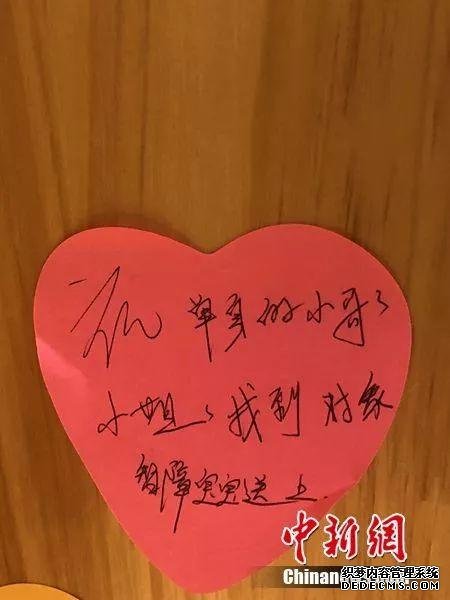 祝 单身的小哥々
小姐々 找到 对象
智障 送上.
中新網
Chinan
织梦内容管理系统
DEDECMS.COM